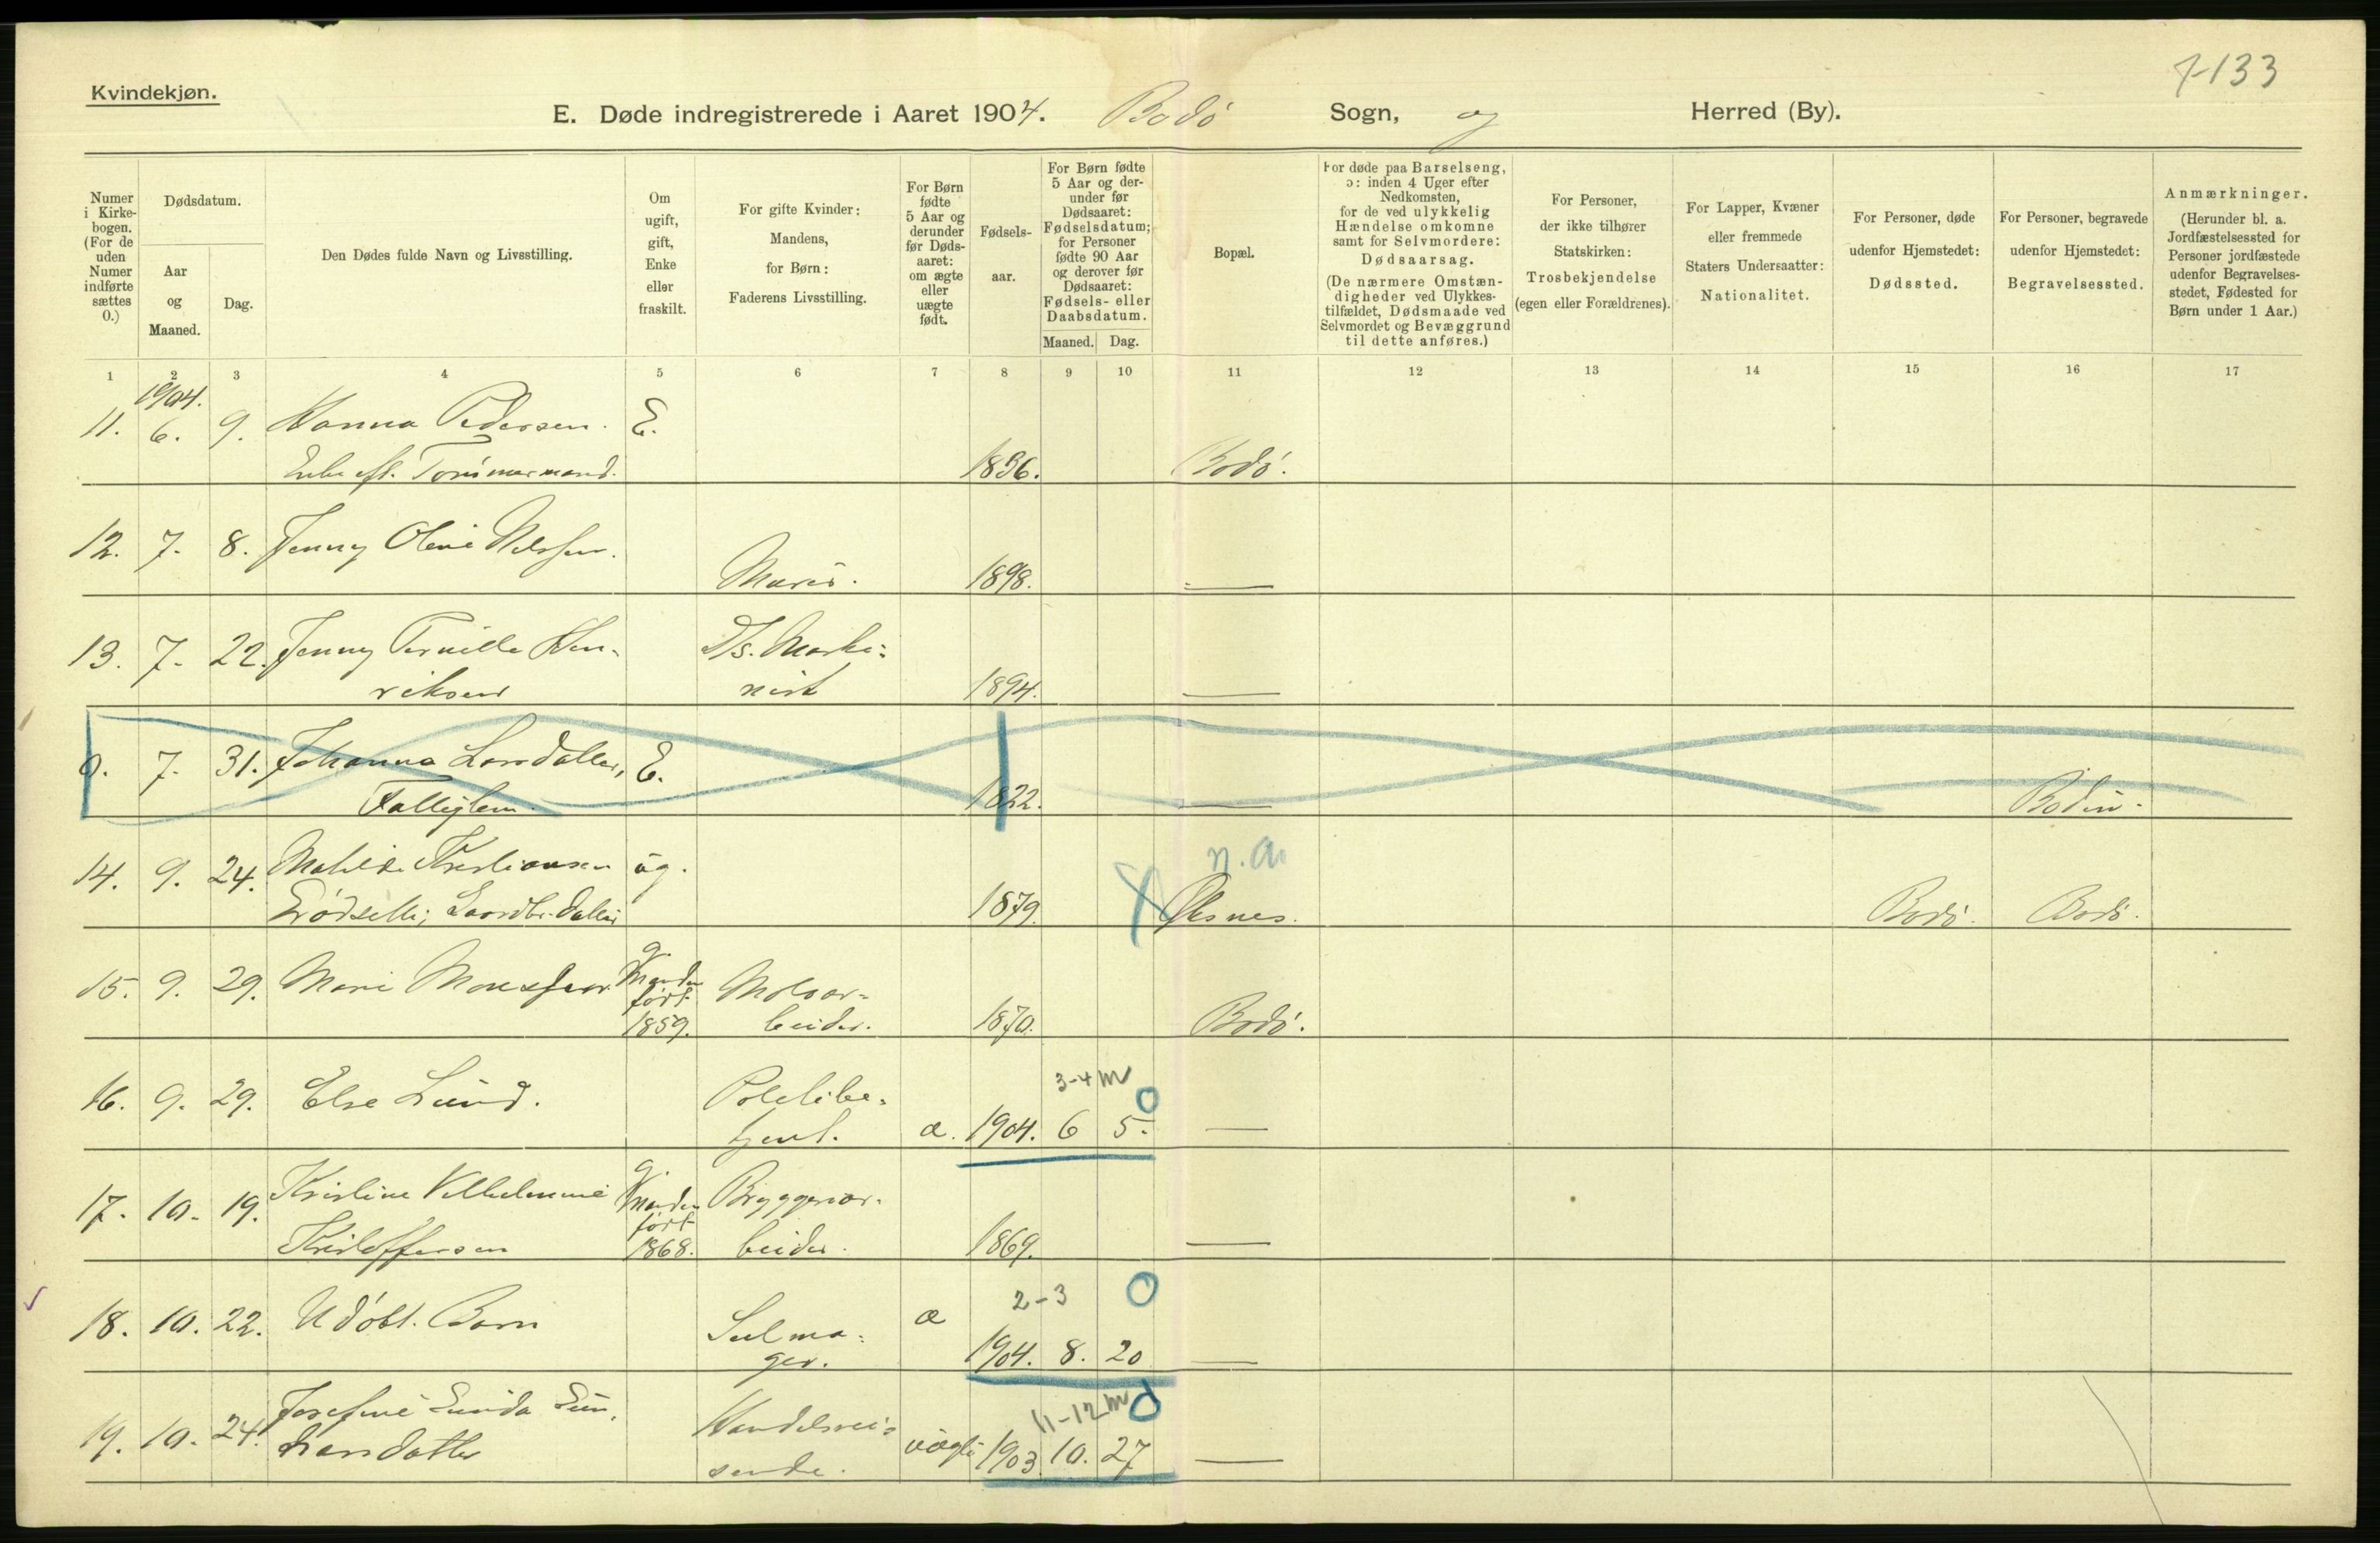 Kvindekjøn.
7-133
E. Døde indregistrerede i Aaret 1904. Bodø Sogn, og Herred (By).
Numer i Kirkebogen. (For de uden Numer indførte sættes 0.)
Dødsdatum.
Aar og Maaned.
Dag.
Den Dødes fulde Navn og Livsstilling.
Om ugift, gift, Enke eller fraskilt.
For gifte Kvinder: Mandens, for Børn: Faderens Livsstilling.
For Børn fødte 5 Aar og derunder før Dødsaaret: om ægte eller uægte født.
Fødselsaar.
For Børn fødte 5 Aar og derunder før Dødsaaret: Fødselsdatum; for Personer fødte 90 Aar og derover før Dødsaaret: Fødsels- eller Daabsdatum.
Maaned. Dag.
Bopæl.
For døde paa Barselseng, ɔ: inden 4 Uger efter Nedkomsten, for de ved ulykkelig Hændelse omkomne samt for Selvmordere: Dødsaarsag. (De nærmere Omstændigheder ved Ulykkestilfældet, Dødsmaade ved Selvmordet og Bevæggrund til dette anføres.)
For Personer, der ikke tilhører Statskirken: Trosbekjendelse (egen eller Forældrenes).
For Lapper, Kvæner eller fremmede Staters Undersaatter: Nationalitet.
For Personer, døde udenfor Hjemstedet: Dødssted.
For Personer, begravede udenfor Hjemstedet: Begravelsessted.
Anmærkninger. (Herunder bl. a. Jordfæstelsessted for Personer jordfæstede udenfor Begravelsesstedet, Fødested for Børn under 1 Aar.)
1 2 3 4 5 6 7 8 9 10 11 12 13 14 15 16 17
1904.
11. 6. 9. Hanna Pedersen. E.
Enke eft. Tømmermand. 1836. Bodø.
12. 7. 8. Jenny Oline Nilssen.
Murer. 1898. —
13. 7. 22. Jenny Pernille Hen- Ds. Maski-
riksen nist 1894. —
0. 7. 31. Johanna Larsdatter, E.
Fattiglem. 1822. — Bodin.
14. 9. 24. Matilde Kristiansen ug. n. a.
1879. Øksnes. Bodø. Bodø.
15. 9. 29. Marie Monssen g. Manden født 1859. Moloar-
beider. 1870. Bodø.
16. 9. 29. Else Lund. Politibe- 3-4 m
tjent. æ. 1904. 6 5. —
17. 10. 19. Kristine Vilhelmine g. Manden født 1868. Bryggeriar-
Kristoffersen beider. 1869. —
18. 10. 22. Udøbt. Barn Selma- æ 2-3
ger. 1904. 8. 20 —
19. 10. 24. Josefine Handelsrei- 11-12 m
sende. uægte 1903 10. 27 —